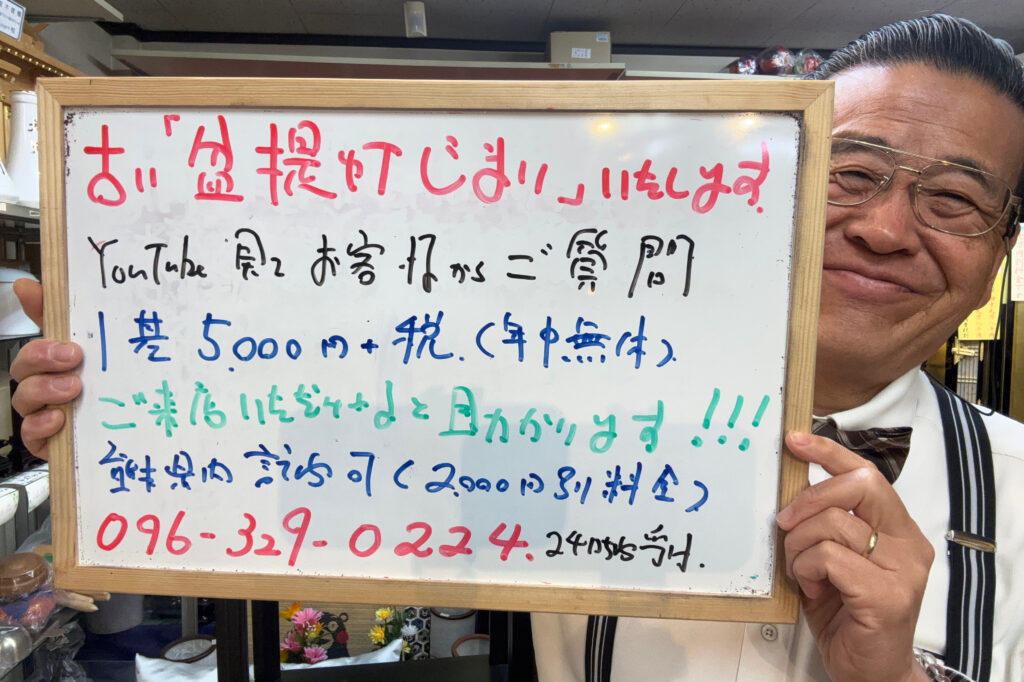 古い「盆提灯じまい」いたします
YouTube見てお客様からご質問
1基 5,000円+税.(年中無休)
ご来店いただけますと助かります!!!
熊本県内 訪内可(2,000円別料金)
096-329-0224. 24時間受付.